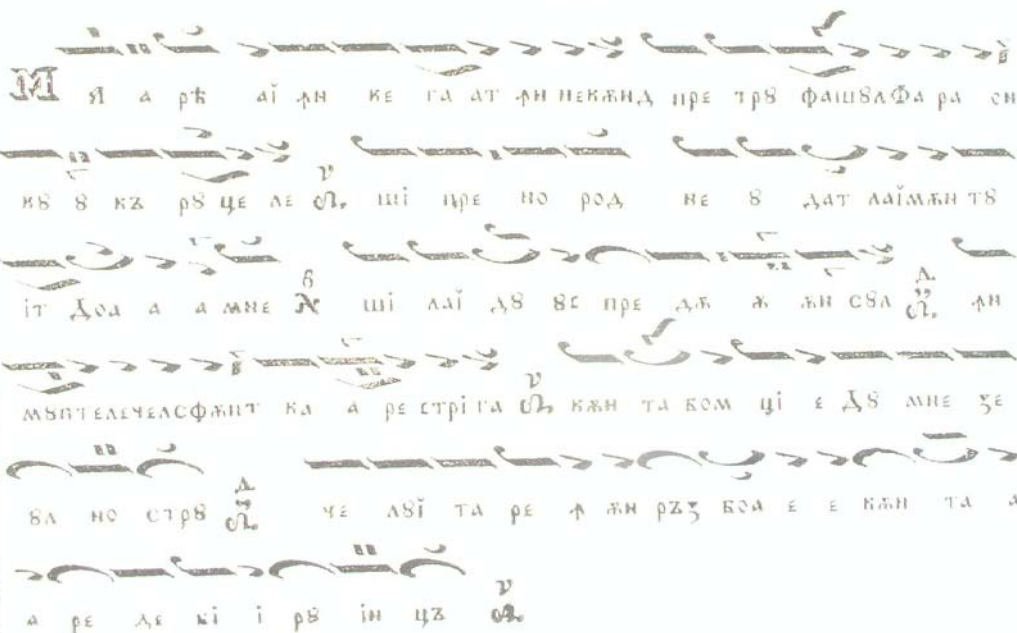 М Я а рѣ аї ꙟн ке га ат ꙟн некѫнд пре трꙋ фашꙋл Фа ра он
кꙋ ꙋ къ рꙋ це ле ші пре но род не ꙋ дат лаї мѫн тꙋ
іт Доа а а мне ші лаї дꙋ ꙋс пре дѫ ѫ ѫн сꙋл ꙟн
мꙋн теле челсфѫнт ка а ре стрі га кѫн та вом ці е Дꙋ мне ꙁе
ꙋл но стрꙋ че лꙋї та ре ꙟ ѫн ръꙁ боа е е кѫн та а
а ре де бі і рꙋ ін цъ